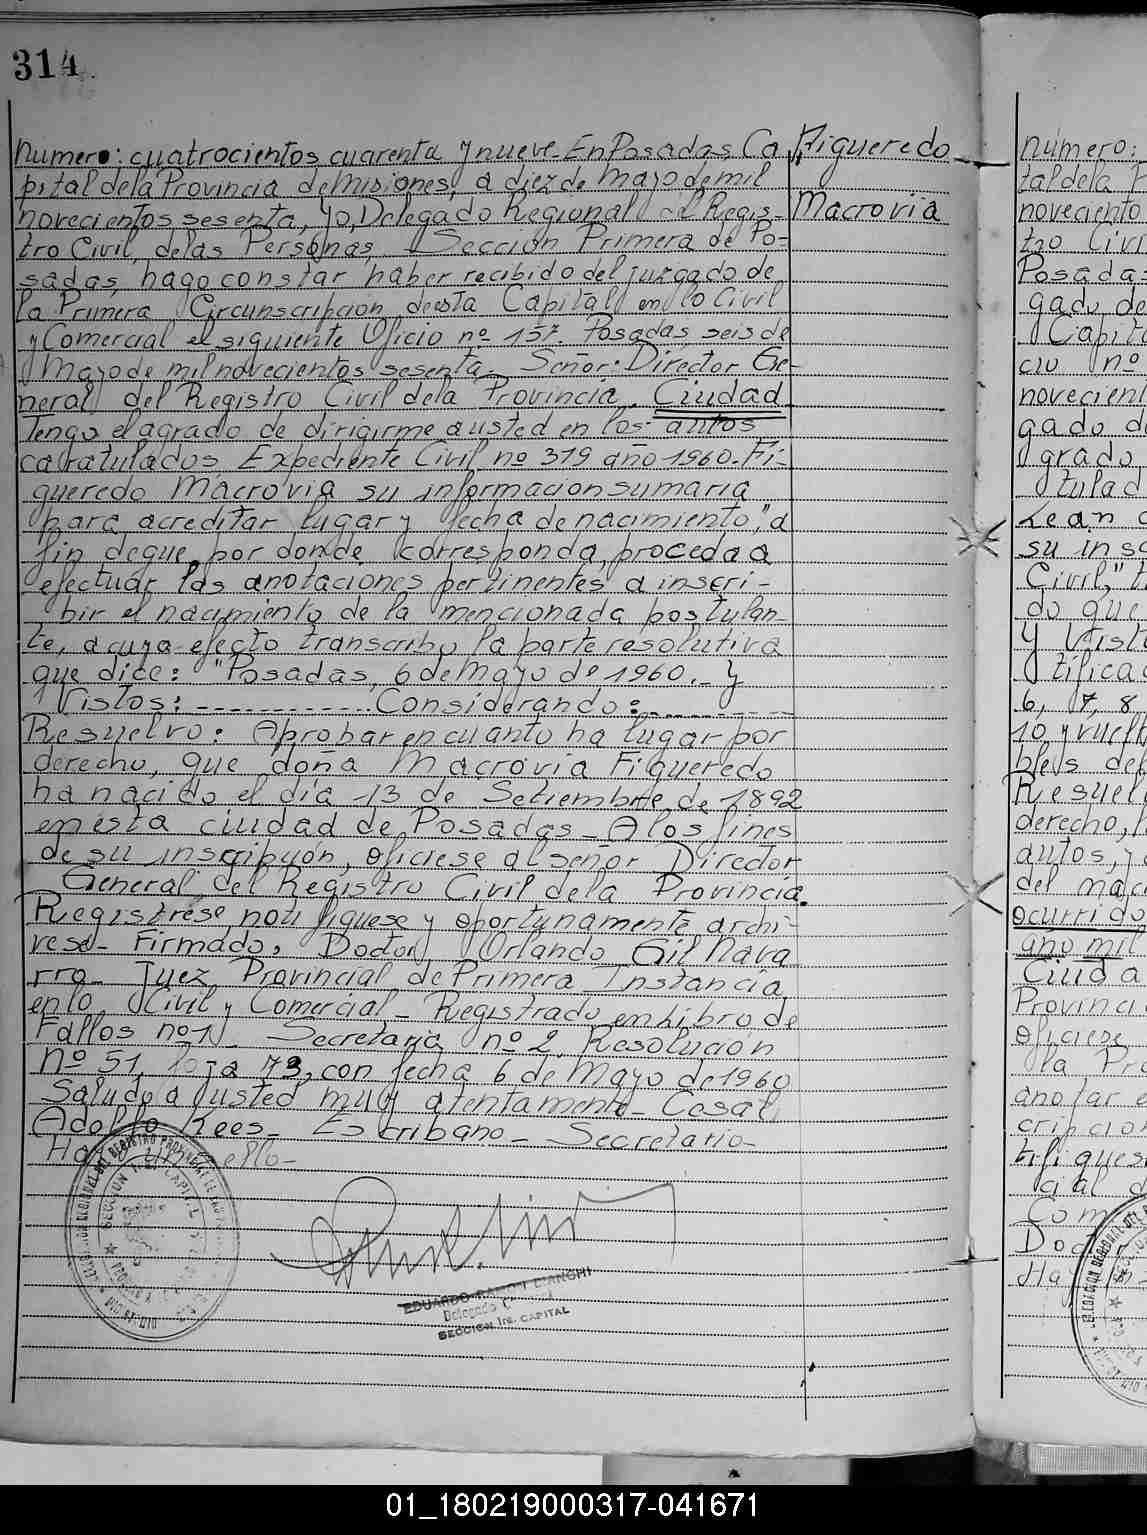 314
Figueredo
Macrovia
numero: cuatrocientos cuarenta y nueve - En Posadas, Ca
pital de la Provincia de Misiones, a diez de mayo de mil
novecientos sesenta, yo, Delegado Regional del Regis-
tro Civil, de las Personas, Sección Primera de Po-
sadas, hago constar haber recibido del juzgado de
la Primera Circunscripción de esta Capital en lo Civil
y Comercial el siguiente Oficio nº 157. Posadas seis de
Mayo de mil novecientos sesenta. Señor: Director Ge-
neral del Registro Civil de la Provincia. Ciudad
Tengo el agrado de dirigirme a usted en los autos
caratulados Expediente Civil nº 319 año 1960. Fi-
gueredo Macrovia su informacion sumaria
para acreditar lugar y fecha de nacimiento," a
fin de que, por donde corresponda, proceda a
efectuar las anotaciones pertinentes a inscri-
bir el nacimiento de la mencionada postulan-
te, a cuya efecto transcribo la parte resolutiva
que dice: "Posadas, 6 de Mayo de 1960. - Y
Vistos: ------------ Considerando: ----------
Resuelvo: Aprobar en cuanto ha lugar por
derecho, que doña Macrovia Figueredo
ha nacido el día 13 de Setiembre de 1892
en esta ciudad de Posadas - A los fines
de su inscripción, ofíciese al señor Director
General del Registro Civil de la Provincia.
Regístrese, notifíquese y oportunamente archí-
vese - Firmado, Doctor Orlando Gil Nava
rro - Juez Provincial de Primera Instancia
en lo Civil y Comercial - Registrado en Libro de
Fallos nº 1 - Secretaria nº 2. Resolución
Nº 51, foja 73, con fecha 6 de Mayo de 1960
Saludo a usted muy atentamente - Cesar
Adolfo Rees - Escribano - Secretario -
Hay un sello -
EDUARDO RAMON BIANCHI
SECCION 1ra. CAPITAL
número:
tal de la P
noveciento
tro Civi
Posada
gado de
Capita
cio nº
novecien
gado d
grado
tulad
Lean
su ins
Civil," t
do que
y Vist
tifica
6, 7, 8,
10 y vuel
bles de
Resuel
derecho,
autos, y
del ma
ocurrido
año mil
Ciuda
Provinci
ofíciese
la Pro
anotar e
cripcion
tifiques
cial d
Com
Doc
Ha
01_180219000317-041671